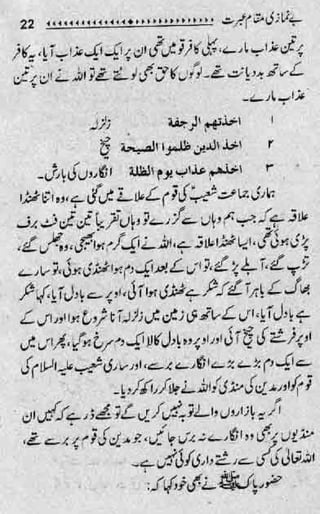 بے نمازی مقام عبرت 22
پر تین عذاب مارے، پہلی کافر قومیں تھی ان پر ایک ایک عذاب آیا، یہ کافر
کے ساتھ بددیانت تھے۔ لوگوں کا حق بھی لوٹتے تھے تو اللہ نے ان پر تین
عذاب مارے۔
۱ اخذتهم الرجفة زلزلہ
۲ اخذ الذين ظلموا الصيحة چیخ
۳ اخذهم عذاب يوم الظلة انگاروں کی بارش۔
ہماری جماعت شعیبؑ کی قوم کے علاقے میں گئی ہے، وہ اتنا ٹھنڈا
علاقہ ہے کہ جب ہم وہاں سے گزرے تو وہاں تقریباً تین تین فٹ برف
پڑی ہوئی تھی، ایسا ٹھنڈا علاقہ ہے، اللہ نے ایک گرم ہوا بھیجی، وہ جھلس گئے،
تڑپ گئے، آبلے پڑ گئے، تو اس کے بعد ایک دم ہوا ٹھنڈی ہوئی، تو سارے
بھاگ کے باہر آ گئے کہ شکر ہے ٹھنڈی ہوا آئی، اوپر سے بادل آیا، کہا شکر
ہے بادل آیا، اس کے ساتھ ہی زمین میں زلزلہ آنا شروع ہوا اور اس کے
اوپر فرشتے کی چیخ آئی اور اوپر وہ بادل کالا ایک دم سرخ ہو گیا، پھر اس میں
سے ایک دم بڑے بڑے انگارے برسے، اور ساری شعیب علیہ السلام کی
قوم کو اور مدین کی منڈی کو اللہ نے جلا کر راکھ کر دیا۔
اگر یہ بازاروں والے توبہ نہیں کریں گے تو مجھے ڈر ہے کہ کہیں ان
منڈیوں پر بھی وہ انگارے نہ برس جائیں، جو مدین کی قوم پر برسے تھے،
اللہ تعالیٰ کی کسی سے رشتے داری کوئی نہیں ہے۔
حضور پاک ﷺ نے بھی خود کہا کہ: